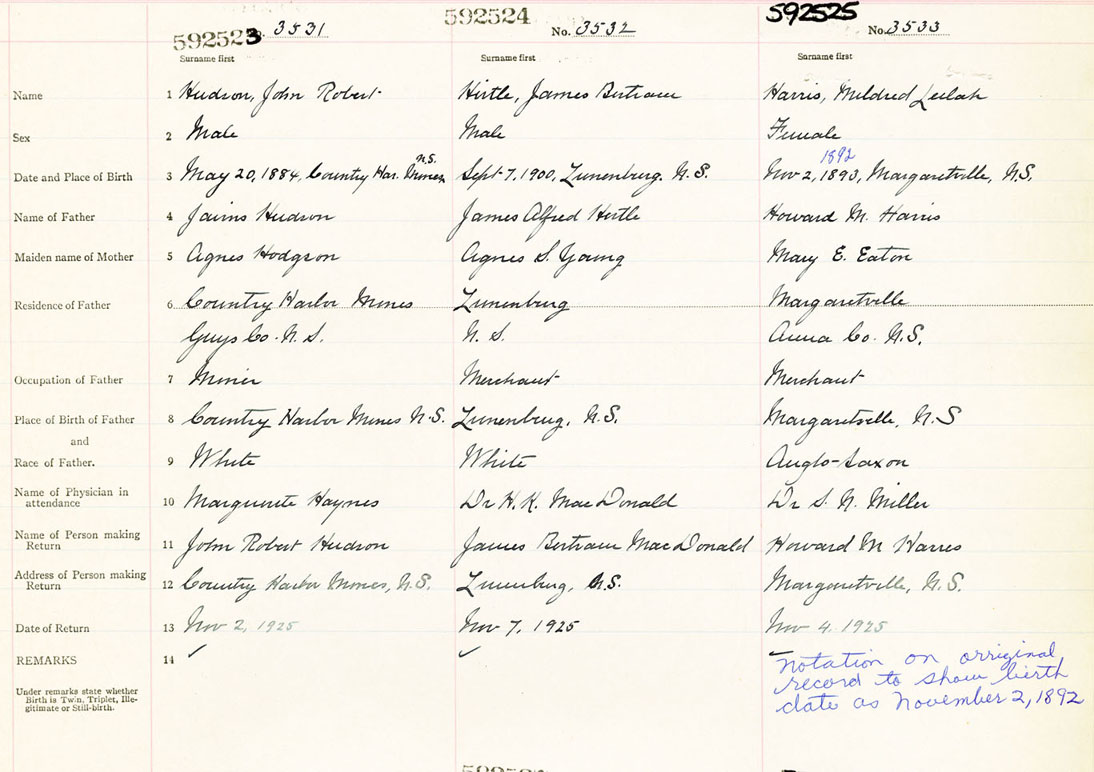 592523 3531 592524 No. 3532 592525 No. 3533
Surname first Surname first Surname first
Name 1 Hudson, John Robert Hirtle, James Bertram Harris, Mildred Leilah
Sex 2 Male Male Female
N.S. 1892
Date and Place of Birth 3 May 20, 1884, Country Har. Mines Sept 7, 1900, Lunenburg. N.S. Nov 2, 1893, Margaretville, N.S.
Name of Father 4 Jairns Hudson James Alfred Hirtle Howard M. Harris
Maiden name of Mother 5 Agnes Hodgson Agnes S. Young Mary E. Eaton
Residence of Father 6 Country Harbor Mines Lunenburg Margaretville
Guys Co. N.S. N.S. Anna Co. N.S.
Occupation of Father 7 Miner Merchant Merchant
Place of Birth of Father 8 Country Harbor Mines N.S. Lunenburg, N.S. Margaretville, N.S
and
Race of Father. 9 White White Anglo-Saxon
Name of Physician in
attendance 10 Marguerite Haynes Dr H.K. MacDonald Dr S. N. Miller
Name of Person making
Return 11 John Robert Hudson James Bertram MacDonald Howard M Harris
Address of Person making
Return 12 Country Harbor Mines, N.S. Lunenburg, N.S. Margaretville, N.S.
Date of Return 13 Nov 2, 1925 Nov 7, 1925 Nov 4, 1925
REMARKS 14 ✓ ✓ notation on orriginal
record to show birth
date as November 2, 1892
Under remarks state whether
Birth is Twin, Triplet, Ille-
gitimate or Still-birth.